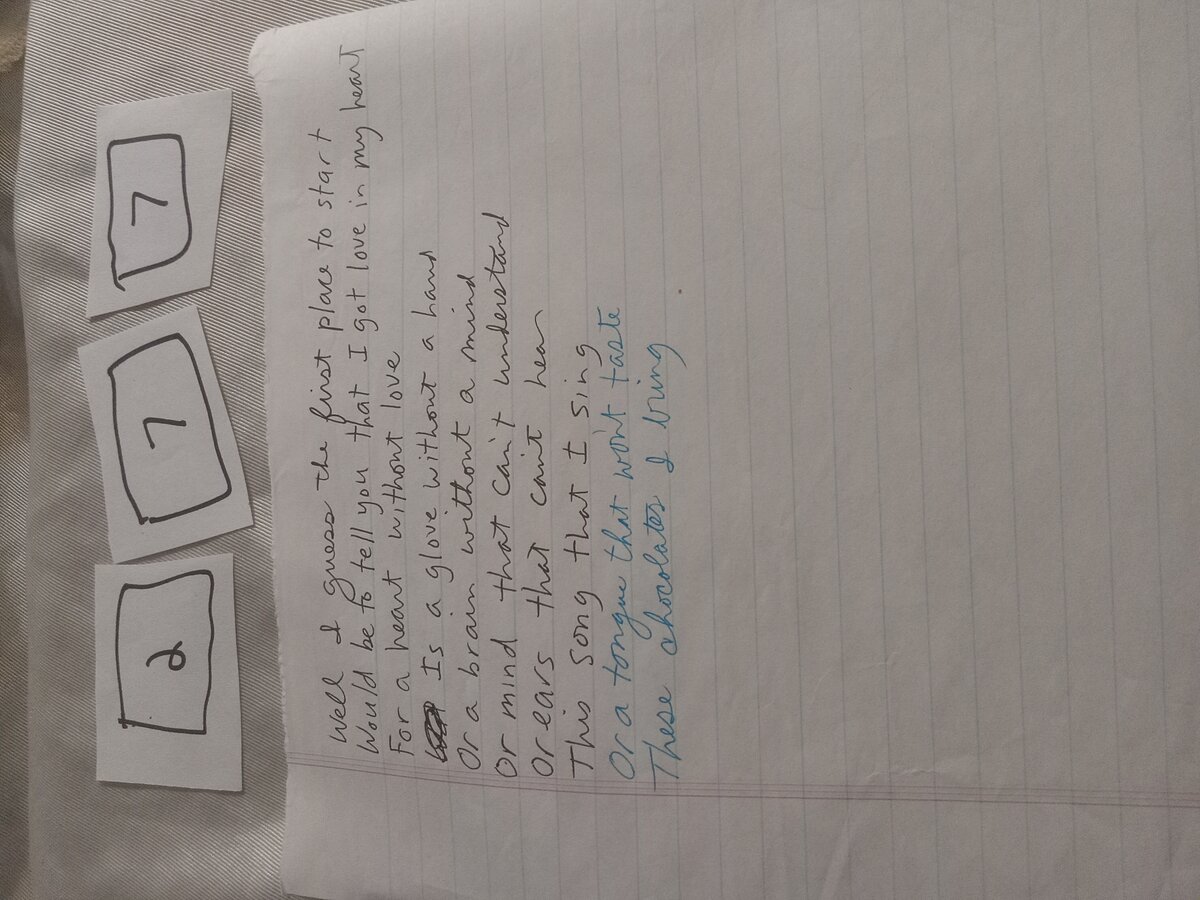 2
7
7
Well I guess the first place to start
Would be to tell you that I got love in my heart
For a heart without love
Is a glove without a hand
Or a brain without a mind
Or mind that can't understand
Or ears that can't hear
This song that I sing
Or a tongue that won't taste
These chocolates I bring